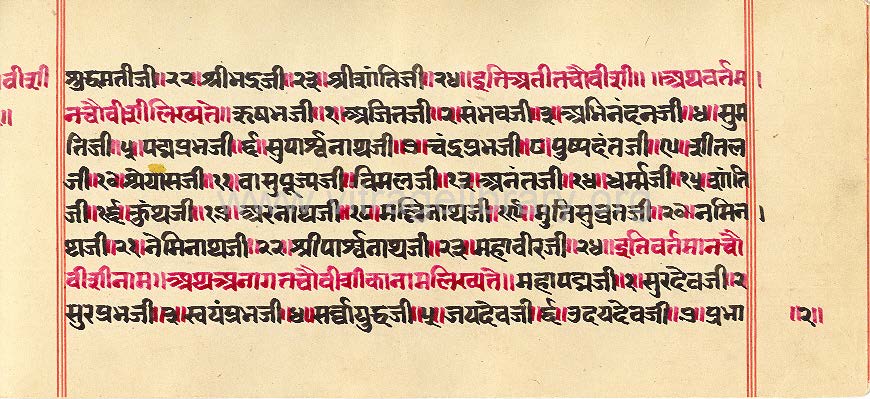 वीसी शुद्धमतीजी॥२२॥श्रीभद्रजी॥२३॥श्रीशांतिजी॥२४॥इतिअतीतचौवीशी॥ ॥अथवर्तम।
॥ नचौवीशीलिख्यते॥रुषभजी॥१॥अजितजी॥२॥संभवजी॥३॥अभिनंदनजी॥४॥सुम
तिजी॥५॥पद्मप्रभजी॥६॥सुपार्श्वनाथजी॥७॥चंद्रप्रभजी॥८॥पुष्पदंतजी॥९॥शीतल
जी॥१०॥श्रेयांसजी॥११॥वासुपूज्यजी॥विमलजी॥१३॥अनंतजी॥१४॥धर्म्मजी॥१५॥शांति
जी॥१६॥कुंथजी॥१७॥अरनाथजी॥१८॥मल्लिनाथजी॥१९॥मुनिसुव्रतजी॥२०॥नमिन।
थजी॥२१॥नेमिनाथजी॥२२॥श्रीपार्श्वनाथजी॥२३॥महावीरजी॥२४॥इतिवर्तमानचौ
वीशीनाम॥अथअनागतचौवीशीकानामलिख्यते॥महापद्मजी॥१॥सुरदेवजी॥२
सुरप्रभजी॥३॥स्वयंप्रभजी॥४॥सर्व्वायुद्धजी॥५॥जयदेवजी॥६॥उदयदेवजी॥७॥प्रभा ॥२॥
www.vitragelibrary.org